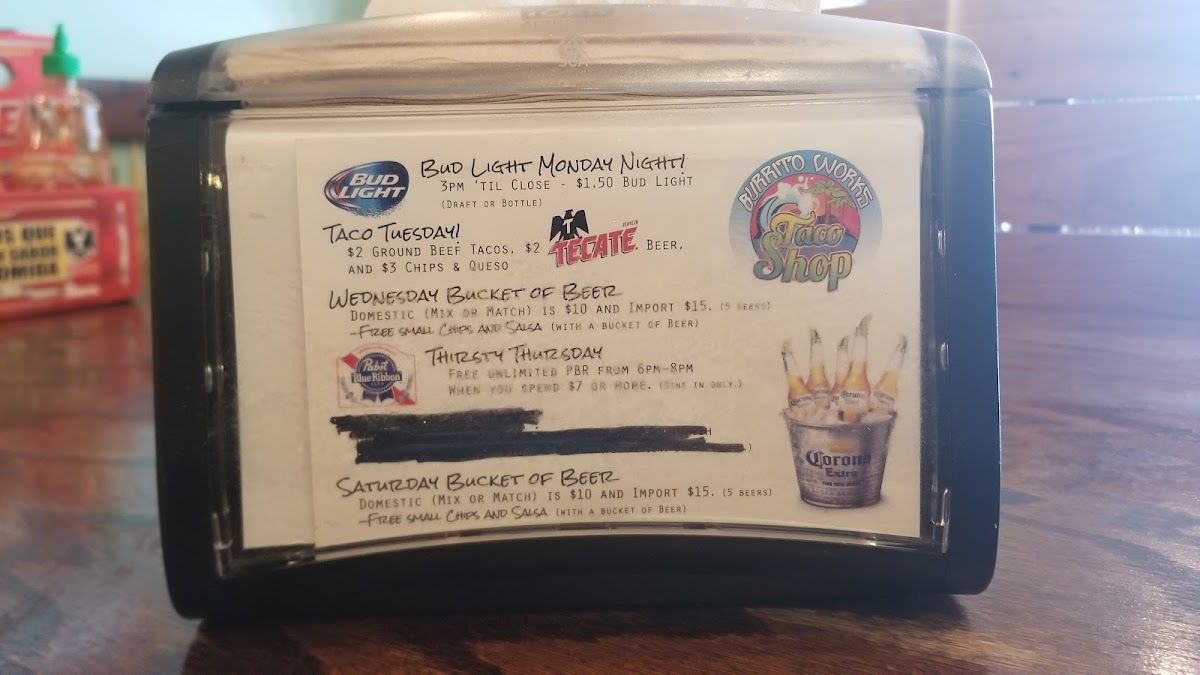 BUD LIGHT
BUD LIGHT MONDAY NIGHT!
3PM 'TIL CLOSE - $1.50 BUD LIGHT
(DRAFT OR BOTTLE)
TACO TUESDAY!
$2 GROUND BEEF TACOS, $2 TECATE BEER,
AND $3 CHIPS & QUESO
WEDNESDAY BUCKET OF BEER
DOMESTIC (MIX OR MATCH) IS $10 AND IMPORT $15. (5 BEERS)
-FREE SMALL CHIPS AND SALSA (WITH A BUCKET OF BEER)
Pabst
Blue Ribbon
THIRSTY THURSDAY
FREE UNLIMITED PBR FROM 6PM-8PM
WHEN YOU SPEND $7 OR MORE. (DINE IN ONLY.)
SATURDAY BUCKET OF BEER
DOMESTIC (MIX OR MATCH) IS $10 AND IMPORT $15. (5 BEERS)
-FREE SMALL CHIPS AND SALSA (WITH A BUCKET OF BEER)
BURRITO WORKS
Taco
Shop
Corona
Extra
QUE
SABOR